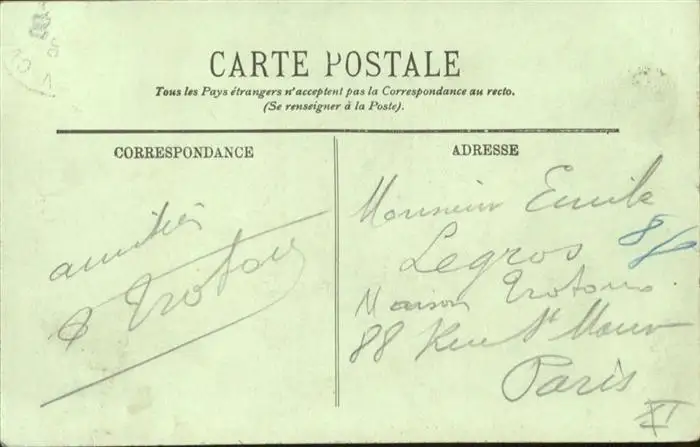 CARTE POSTALE
Tous les Pays étrangers n'acceptent pas la Correspondance au recto.
(Se renseigner à la Poste).
CORRESPONDANCE
ADRESSE
amitiés
Monsieur Emile
Legros
Maison
88 Rue St Maur
Paris
XI